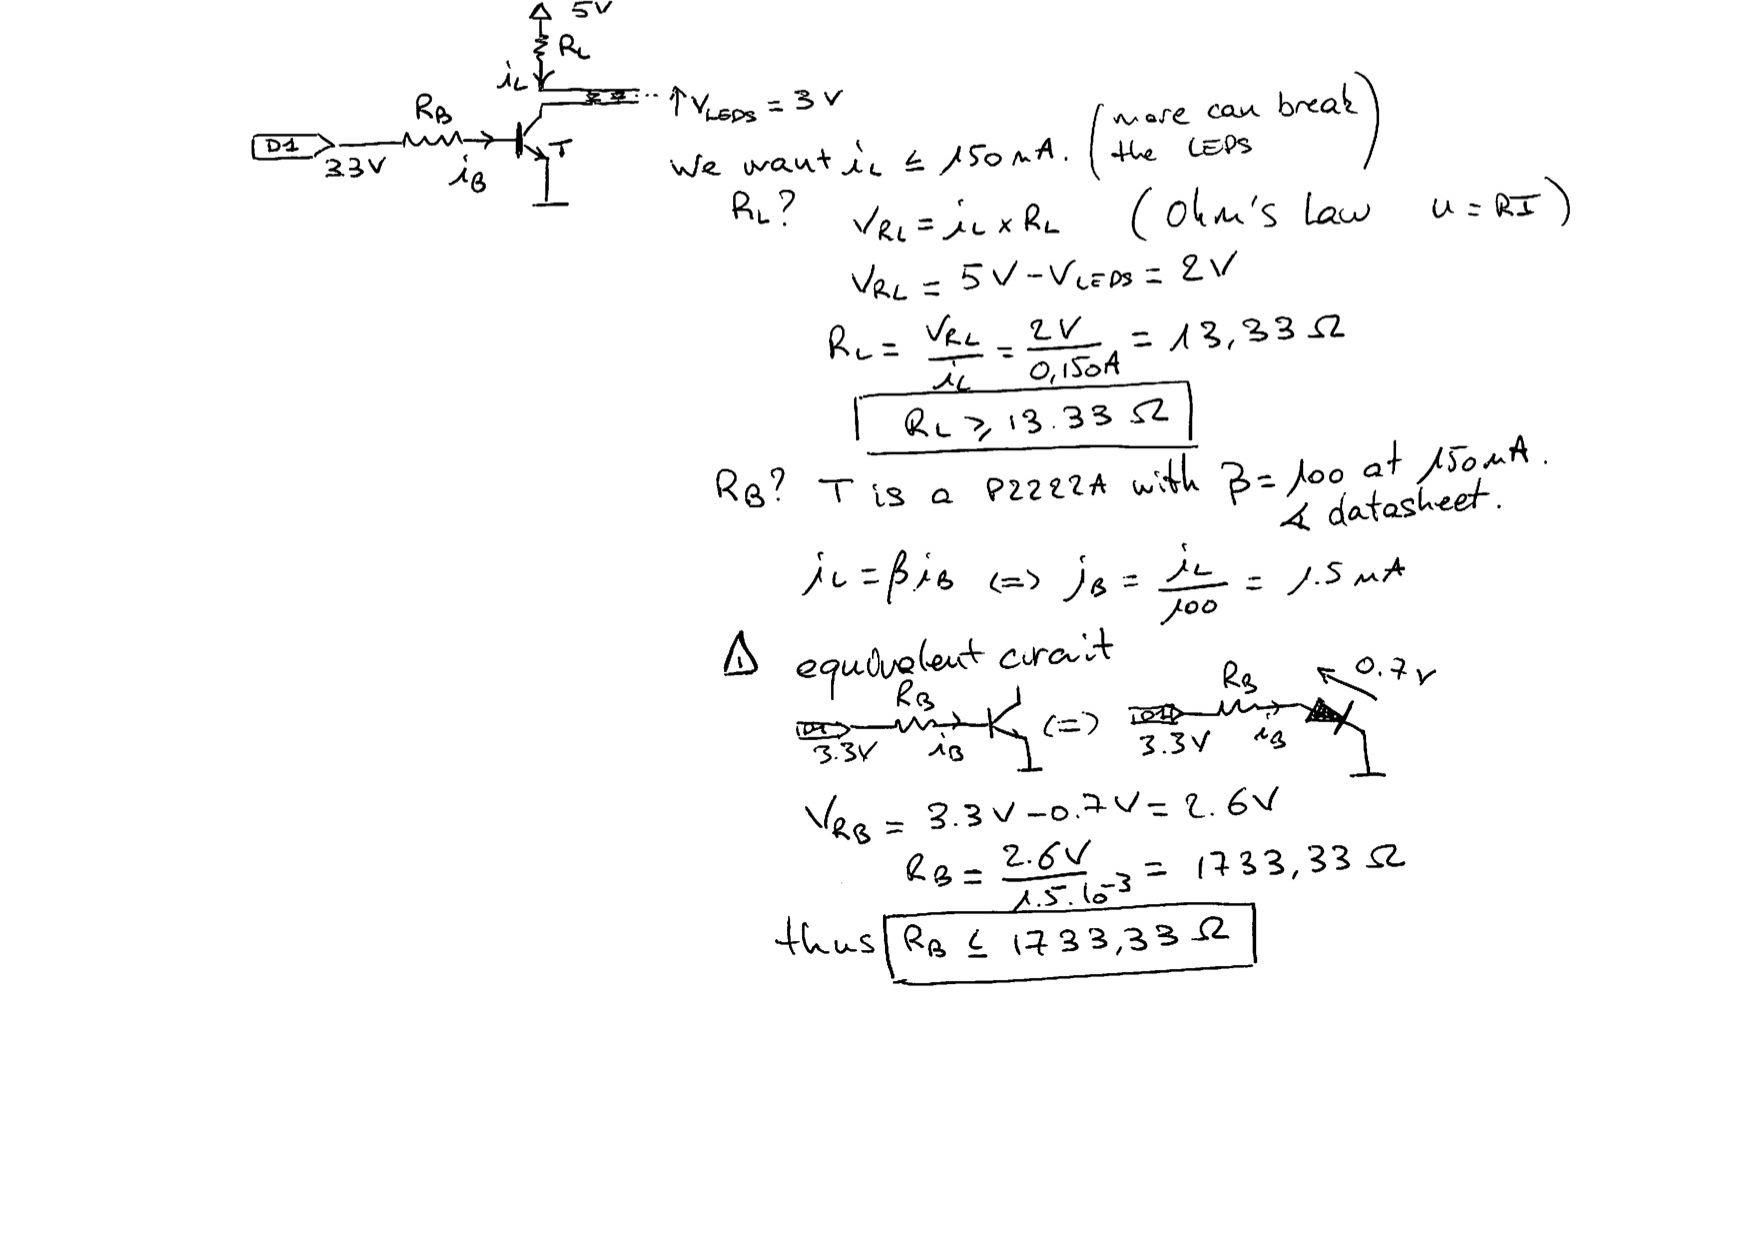 5V
RL
iL
RB
D1
3.3V
iB
T
↑VLEDS = 3V
We want iL ≤ 150mA. (more can break
the LEDS)
RL? VRL = iL x RL (Ohm's Law u = RI)
VRL = 5V - VLEDS = 2V
RL = VRL/iL = 2V/0,150A = 13,33 Ω
RL ≥ 13.33 Ω
RB? T is a P2222A with β = 100 at 150mA.
datasheet.
iL = β iB <=> iB = iL/100 = 1.5 mA
⚠ equivalent circuit
RB
D1
3.3V
iB
<=>
RB
D1
3.3V
iB
0.7V
VRB = 3.3V - 0.7V = 2.6V
RB = 2.6V/1.5.10^-3 = 1733,33 Ω
thus RB ≤ 1733,33 Ω